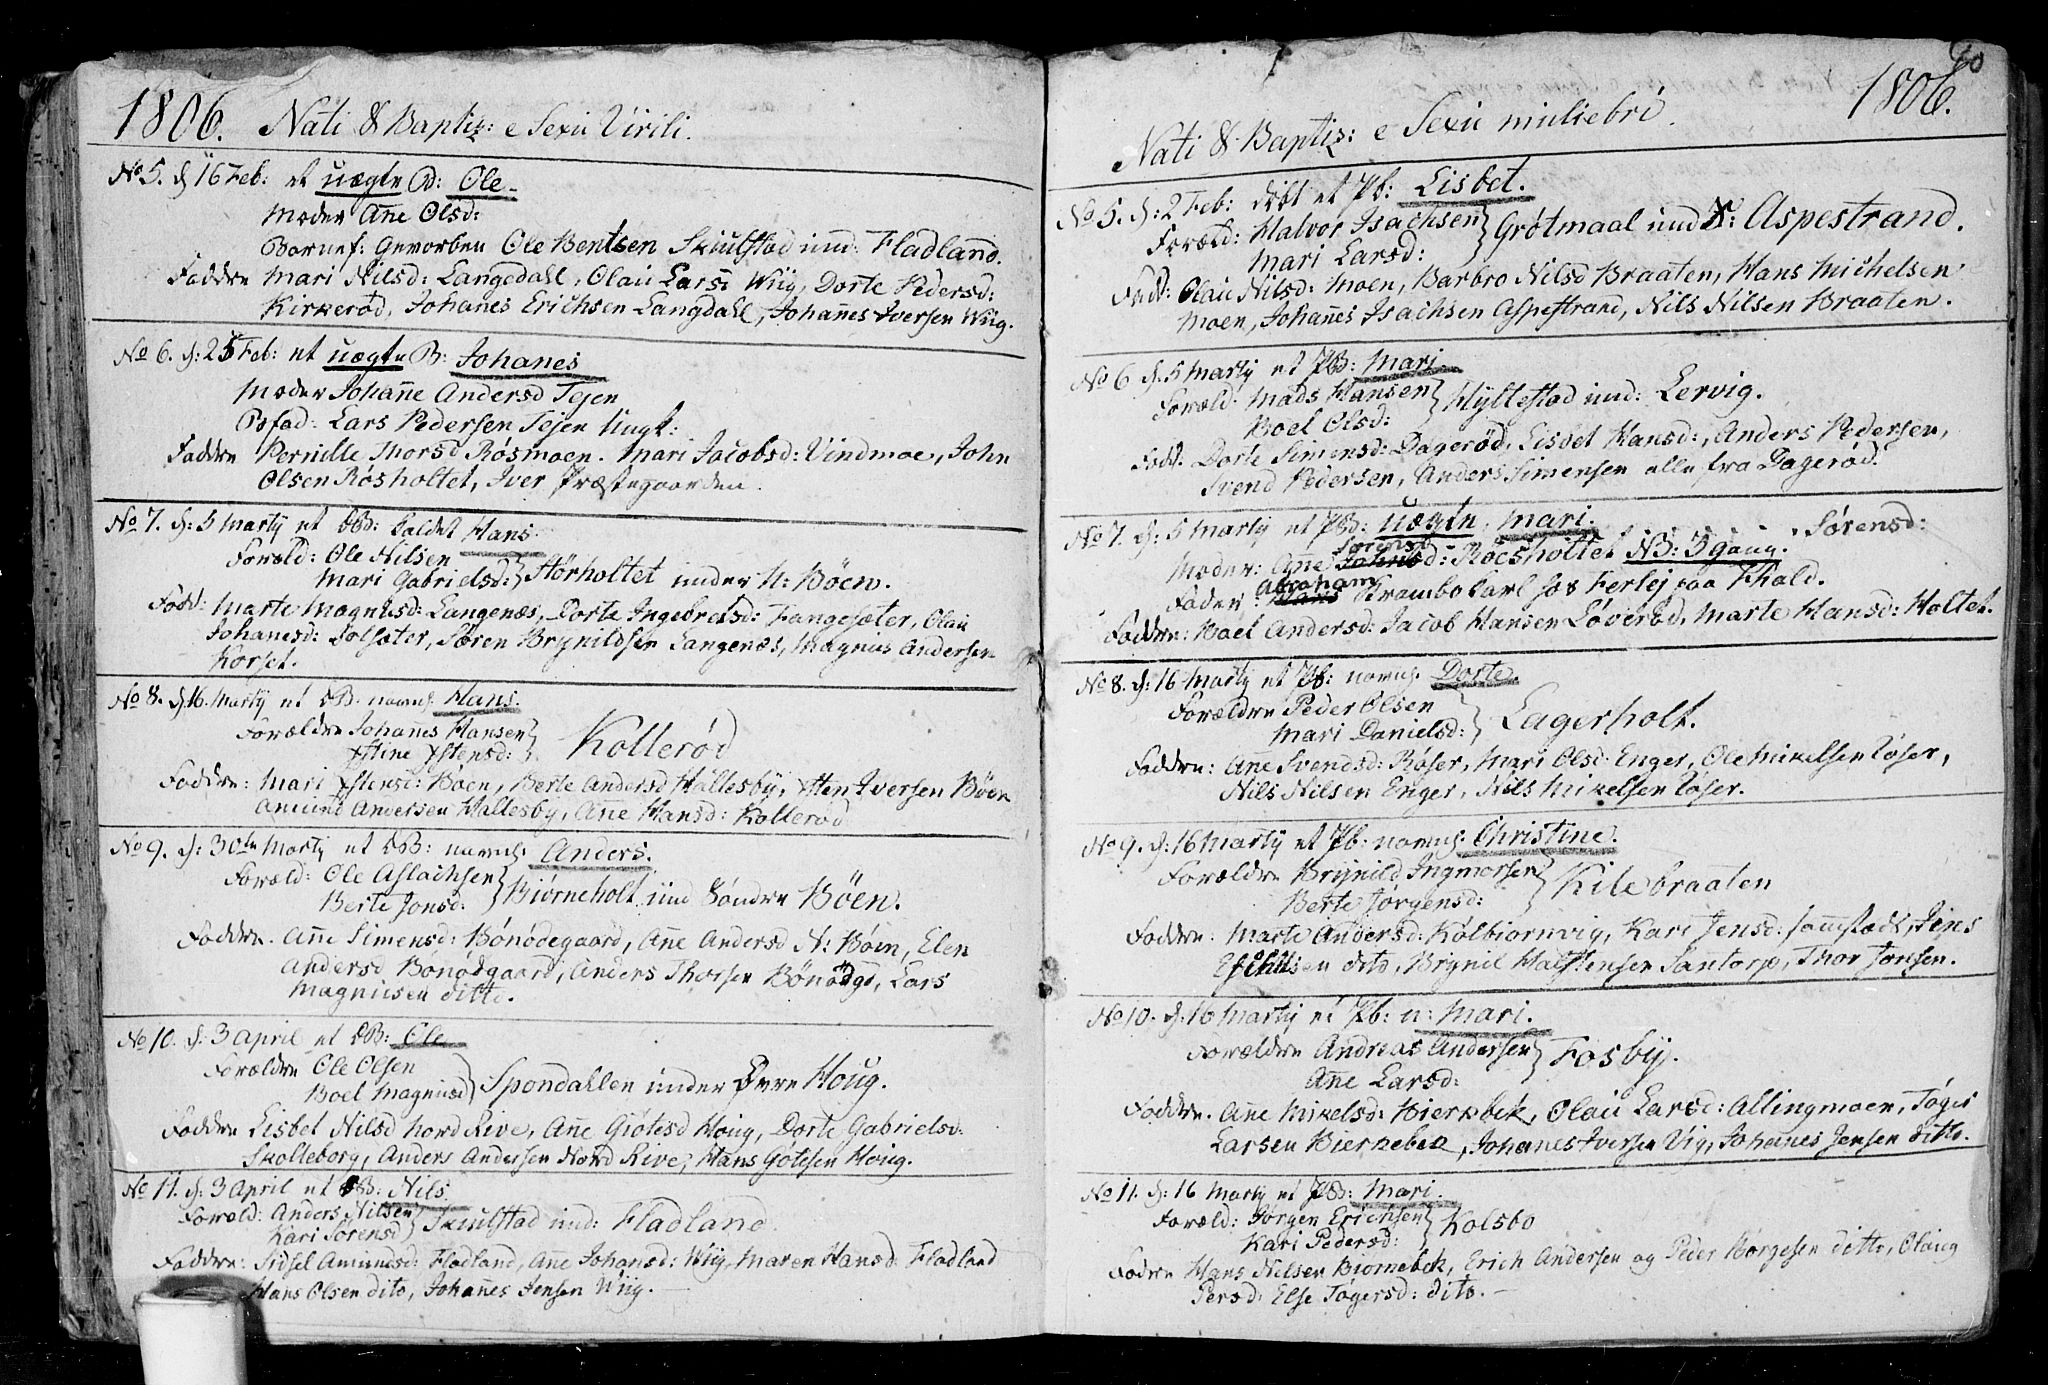 1806. Nati & Baptiz: e Sexu Virili.
No 5. d: 16 Feb: et uægte B: Ole
Moder Ane Olsd:
Barnef: Gevorben Ole Bentsen Skiulstad und: Fladland.
Faddre Mari Nilsd: Langedahl, Olau Larsd Wiig, Dorte Pedersd:
Kirkerød, Johanes Erichsen Langdahl, Johanes Iversen Wiig.
No 6. d: 25 Feb: et uægte B: Johanes
Moder Johane Andersd Tejen
Bfad: Lars Pedersen Tejen Ungk:
Faddre Pernille Thorsd Røsmoen. Mari Jacobsd: Vindmoe, John
Olsen Røsholtet, Iver Præstegaarden.
No 7. d: 5 Marty et DB: kaldet Hans
Foræld: Ole Nilsen
Mari Gabrielsd: Størholtet under N: Böen.
Fadd: Marte Magnusd: Langenæs, Dorte Ingebretsd: Fangesæter, Olau
Johanesd: Solsæter, Søren Brynildsen Langenæs, Magnus Andersen
Korset.
No 8. d: 16. Marty et DB: navnl. Hans.
Forældre Johanes Hansen
Xstine Xstensd: Kollerød
Faddre: Mari Xstensd: Böen, Berte Andersd Hallesby, Xsten Iversen Böen
Amund Andersen Hallesby, Ane Hansd: Kollerød
No 9. d: 30te Marty et DB: navnl. Anders.
Foræld: Ole Aslachsen
Berte Jonsd. Biørneholt und Søndre Böen.
Faddre. Ane Simensd: Bönödegaard, Ane Andersd N: Böen, Elen
Andersd Bönödgaard, Anders Thorsen Bönödgd, Lars
Magnusen ditto.
No 10. d: 3 April et DB: Ole
Forældre Ole Olsen
Boel Magnusd Spondahlen under Øvre Houg.
Faddre Lisbet Nilsd Nord Rive, Ane Giøtesd Houg, Dorte Gabrielsd:
Skolleborg, Anders Andersen Nord Rive, Hans Gøtesen Houg.
No 11. d: 3 April et DB: Nils.
Foræld: Anders Nilsen
Kari Sørensd Skiulstad und: Fladland.
Faddre: Sidsel Amundsd: Fladland, Ane Johansd: Wiig, Maren Hansd: Fladland
Hans Olsen dito, Johanes Jensen Wiig.
90
1806.
Nati & Baptiz: e Sexu muliebri.
No 5. d: 2 Feb: döbt et Pb: Lisbet.
Foræld: Halvor Isachsen
Mari Larsd: Grøtmaal und: Aspestrand.
Fadd: Olau Nilsd: Moen, Barbro Nilsd Braaten, Hans Michelsen
Moen, Johanes Isachsen Aspestrand, Nils Nilsen Braaten.
No 6 d. 5 Marty et PB: Mari.
Foræld. Mads Hansen
Boel Olsd: Hyllestad und: Lervig.
Fadd. Dorte Simensd: Dagerød, Lisbet Hansd:, Anders Pedersen,
Svend Pedersen, Anders Simensen alle fra Dagerød.
No 7. d: 5 Marty et PB: uægte, Mari. Sørensd:
Moder: Ane Sørensd Johnsd: Röesholtet NB: 3 gang.
Fader: Abraham Hans Strambo Karl hos Ferløj paa Fhald.
Faddre: Boel Andersd: Jacob Hansen Løverød, Marte Hansd: Holtet.
No 8. d: 16 Marty et Pb: navnl. Dorte.
Forældre Peder Olsen
Mari Danielsd: Lagerholt.
Faddre: Ane Svendsd: Røser, Mari Olsd: Enger, Ole Mikelsen Røser,
Nils Nilsen Enger, Nils Mikelsen Røser.
No 9. d: 16 Marty et Pb: navnl. Christine.
Forældre Brynild Ingmorsen
Berte Jörgensd: Kilebraaten
Faddre: Marte Andersd: Kolbiornvig, Kari Jensd: Sannstadt, Jens
Eschilsen dito, Brynil Halstensen Santorp, Thor Jonsen.
No 10. d: 16 Marty et Pb: n: Mari.
Forældre Andreas Andersen
Ane Larsd: Fosby.
Faddre. Ane Mikelsd: Bierkebek, Olau Larsd: Allingmoen, Tøger
Larsen Bierkebek, Johanes Iversen Vig, Johanes Jensen ditto.
No 11. d: 16 Marty et PB: Mari.
Foræld: Jörgen Erichsen
Kari Pedersd: Kolsbo
Fadre Hans Nilsen Biornebek, Erich Andersen og Peder Børgesen ditto, Olaug
Persd: Else Tøgersd: dito.